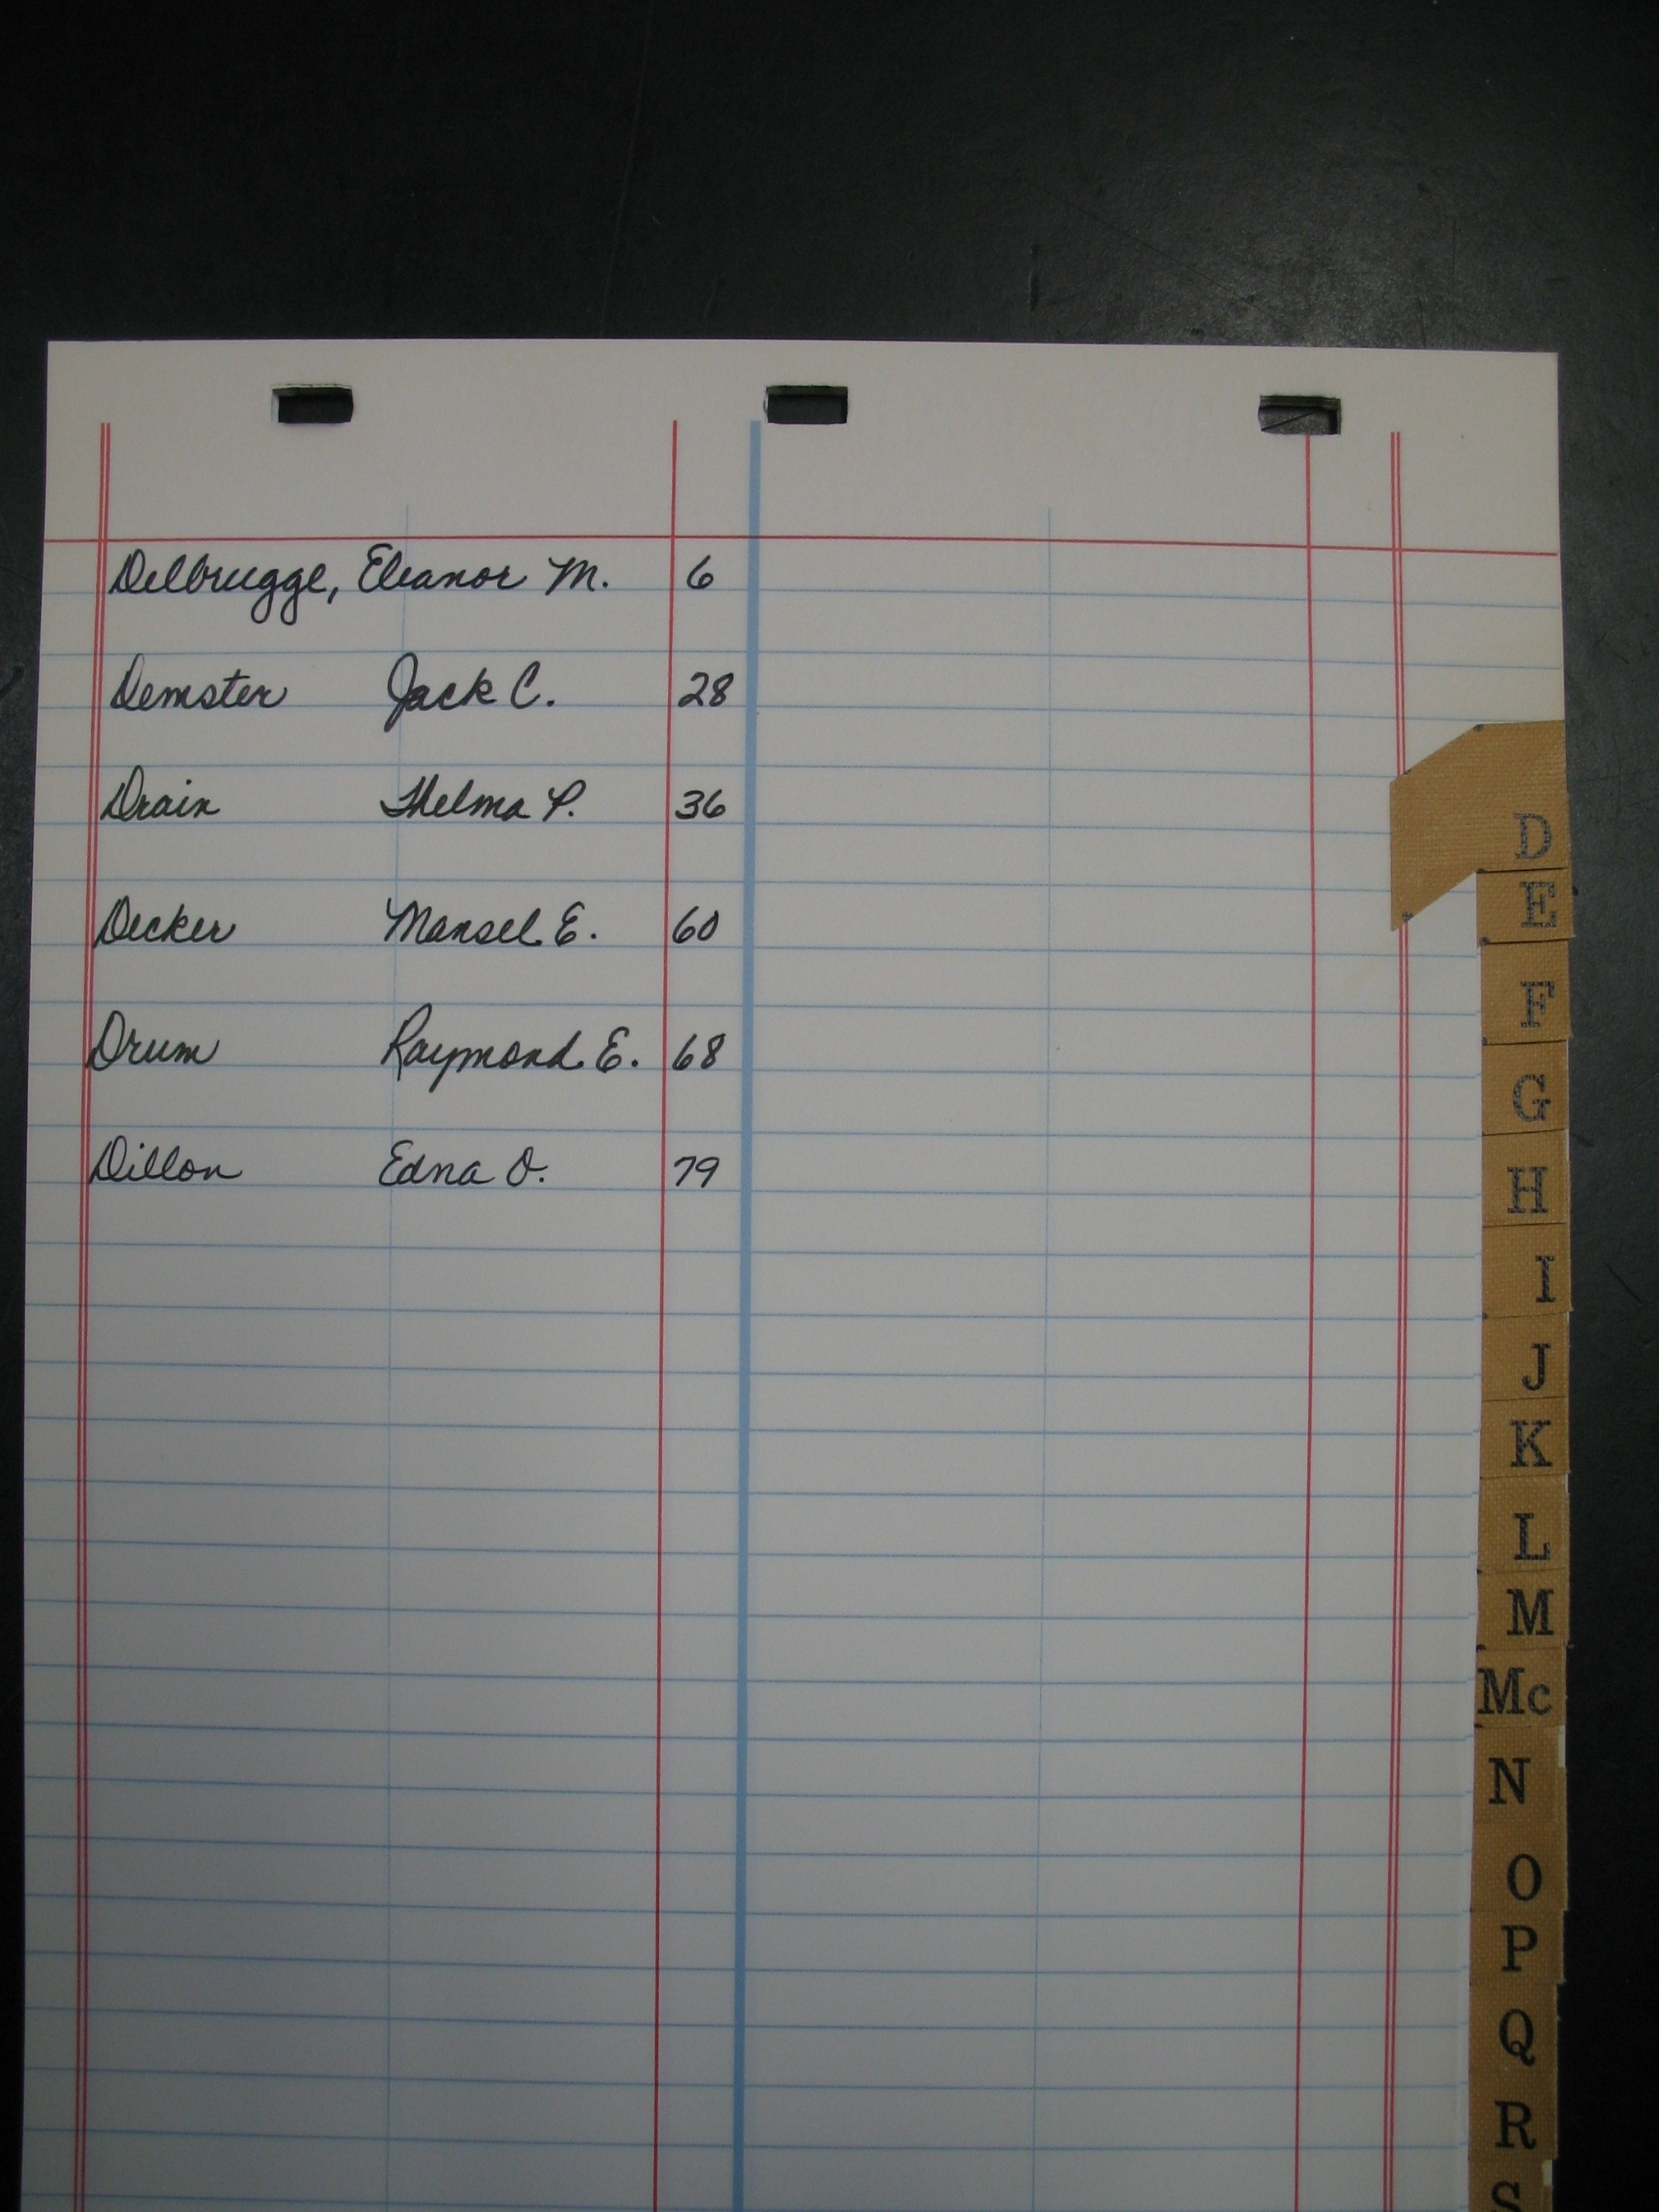 Delbrugge, Eleanor M. 6
Demster Jack C. 28
Drain Thelma P. 36
Decker Mansel E. 60
Drum Raymond E. 68
Dillon Edna O. 79
D
E
F
G
H
I
J
K
L
M
Mc
N
O
P
Q
R
S